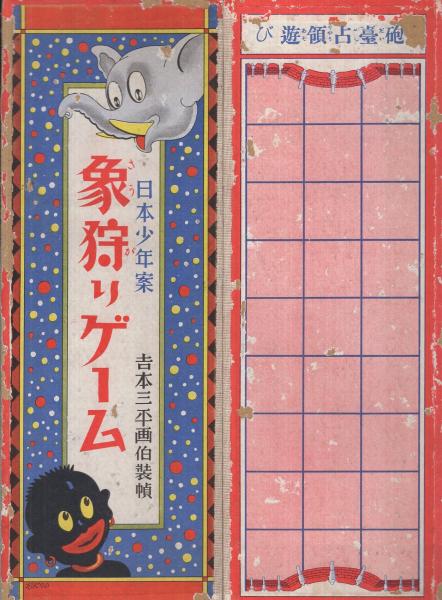 び遊領占臺砲
日本少年案
象狩りゲーム
さうが
吉本三平画伯装幀